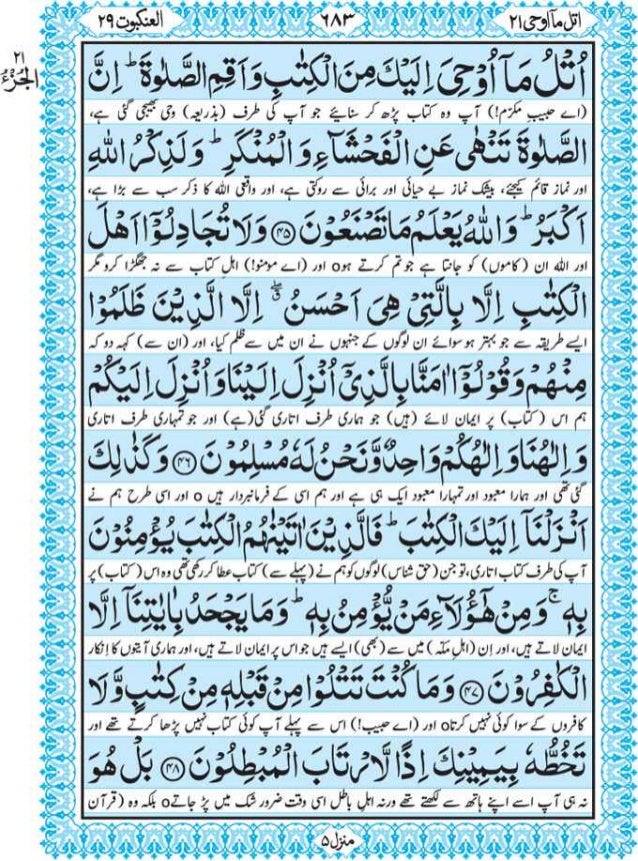 اتل مآ اوحی ۲۱
۶۸۳
العنکبوت ۲۹
۲۱
الجزء
اُتْلُ مَاۤ اُوْحِیَ اِلَیْكَ مِنَ الْكِتٰبِ وَ اَقِمِ الصَّلٰوةَ ؕ اِنَّ
(اے حبیبِ مکرّم!) آپ وہ کتاب پڑھ کر سنائیے جو آپ کی طرف (بذریعہ) وحی بھیجی گئی ہے،
الصَّلٰوةَ تَنْهٰی عَنِ الْفَحْشَآءِ وَ الْمُنْكَرِ ؕ وَ لَذِكْرُ اللّٰهِ
اور نماز قائم کیجئے، بیشک نماز بے حیائی اور برائی سے روکتی ہے، اور واقعی اللہ کا ذکر سب سے بڑا ہے،
اَكْبَرُ ؕ وَ اللّٰهُ یَعْلَمُ مَا تَصْنَعُوْنَ ﴿۴۵﴾ وَ لَا تُجَادِلُوْۤا اَهْلَ
اور اللہ ان (کاموں) کو جانتا ہے جو تم کرتے ہو o اور (اے مومنو!) اہلِ کتاب سے نہ جھگڑا کرو مگر
الْكِتٰبِ اِلَّا بِالَّتِیْ هِیَ اَحْسَنُ ۖۗ اِلَّا الَّذِیْنَ ظَلَمُوْا
ایسے طریقہ سے جو بہتر ہو سوائے ان لوگوں کے جنہوں نے ان میں سے ظلم کیا، اور (ان سے) کہہ دو کہ
مِنْهُمْ وَ قُوْلُوْۤا اٰمَنَّا بِالَّذِیْۤ اُنْزِلَ اِلَیْنَا وَ اُنْزِلَ اِلَیْكُمْ
ہم اس (کتاب) پر ایمان لائے (ہیں) جو ہماری طرف اتاری گئی (ہے) اور جو تمہاری طرف اتاری
وَ اِلٰهُنَا وَ اِلٰهُكُمْ وَاحِدٌ وَّ نَحْنُ لَهٗ مُسْلِمُوْنَ ﴿۴۶﴾ وَ كَذٰلِكَ
گئی تھی اور ہمارا معبود اور تمہارا معبود ایک ہی ہے اور ہم اسی کے فرمانبردار ہیں o اور اسی طرح ہم نے
اَنْزَلْنَاۤ اِلَیْكَ الْكِتٰبَ ؕ فَالَّذِیْنَ اٰتَیْنٰهُمُ الْكِتٰبَ یُؤْمِنُوْنَ
آپ کی طرف کتاب اتاری، تو جن (حق شناس) لوگوں کو ہم نے (پہلے سے) کتاب عطا کر رکھی تھی وہ اس (کتاب) پر
بِهٖ ۚ وَ مِنْ هٰۤؤُلَآءِ مَنْ یُّؤْمِنُ بِهٖ ؕ وَ مَا یَجْحَدُ بِاٰیٰتِنَاۤ اِلَّا
ایمان لاتے ہیں، اور اِن (اہلِ مکّہ) میں سے (بھی) ایسے ہیں جو اس پر ایمان لاتے ہیں، اور ہماری آیتوں کا اِنکار
الْكٰفِرُوْنَ ﴿۴۷﴾ وَ مَا كُنْتَ تَتْلُوْا مِنْ قَبْلِهٖ مِنْ كِتٰبٍ وَّ لَا
کافروں کے سوا کوئی نہیں کرتا o اور (اے حبیب!) اس سے پہلے آپ کوئی کتاب نہیں پڑھا کرتے تھے اور
تَخُطُّهٗ بِیَمِیْنِكَ اِذًا لَّارْتَابَ الْمُبْطِلُوْنَ ﴿۴۸﴾ بَلْ هُوَ
نہ ہی آپ اسے اپنے ہاتھ سے لکھتے تھے ورنہ اہلِ باطل اسی وقت ضرور شک میں پڑ جاتے o بلکہ وہ (قرآن
منزل ۵